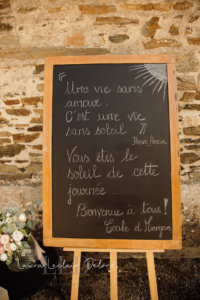 " Une vie sans
amour...
C'est une vie
sans soleil "
Vous êtes le
soleil de cette
journée...
Bienvenue à tous!
Cécile et Morgan